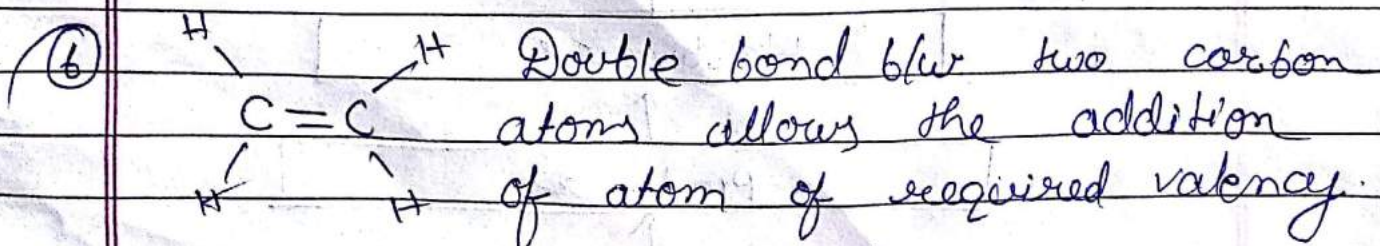 6
H
H Double bond b/w two carbon
C = C atoms allows the addition
H H of atom of required valency.